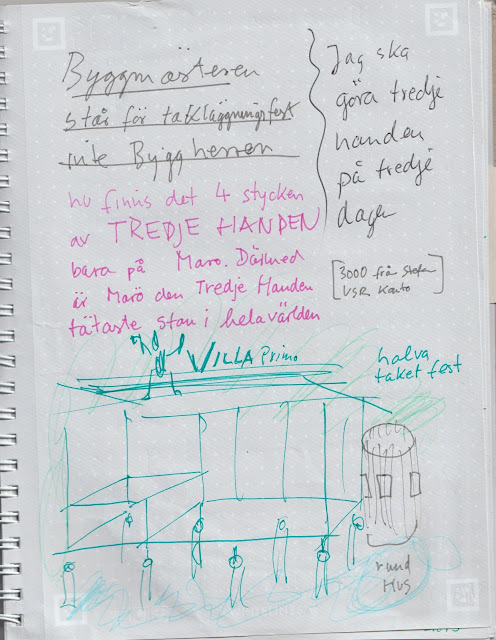 Byggmästeren
står för takläggningsfest
inte Byggherren
Jag ska
göra tredje
handen
på tredje
dagen
nu finns det 4 stycken
av TREDJE HANDEN
bara på Marö. Därmed
är Marö den Tredje Handen
tätaste stan i hela världen
[3000 från Stefan
VSR Konto]
VILLA Primo
halva
taket fest
rund
Hus